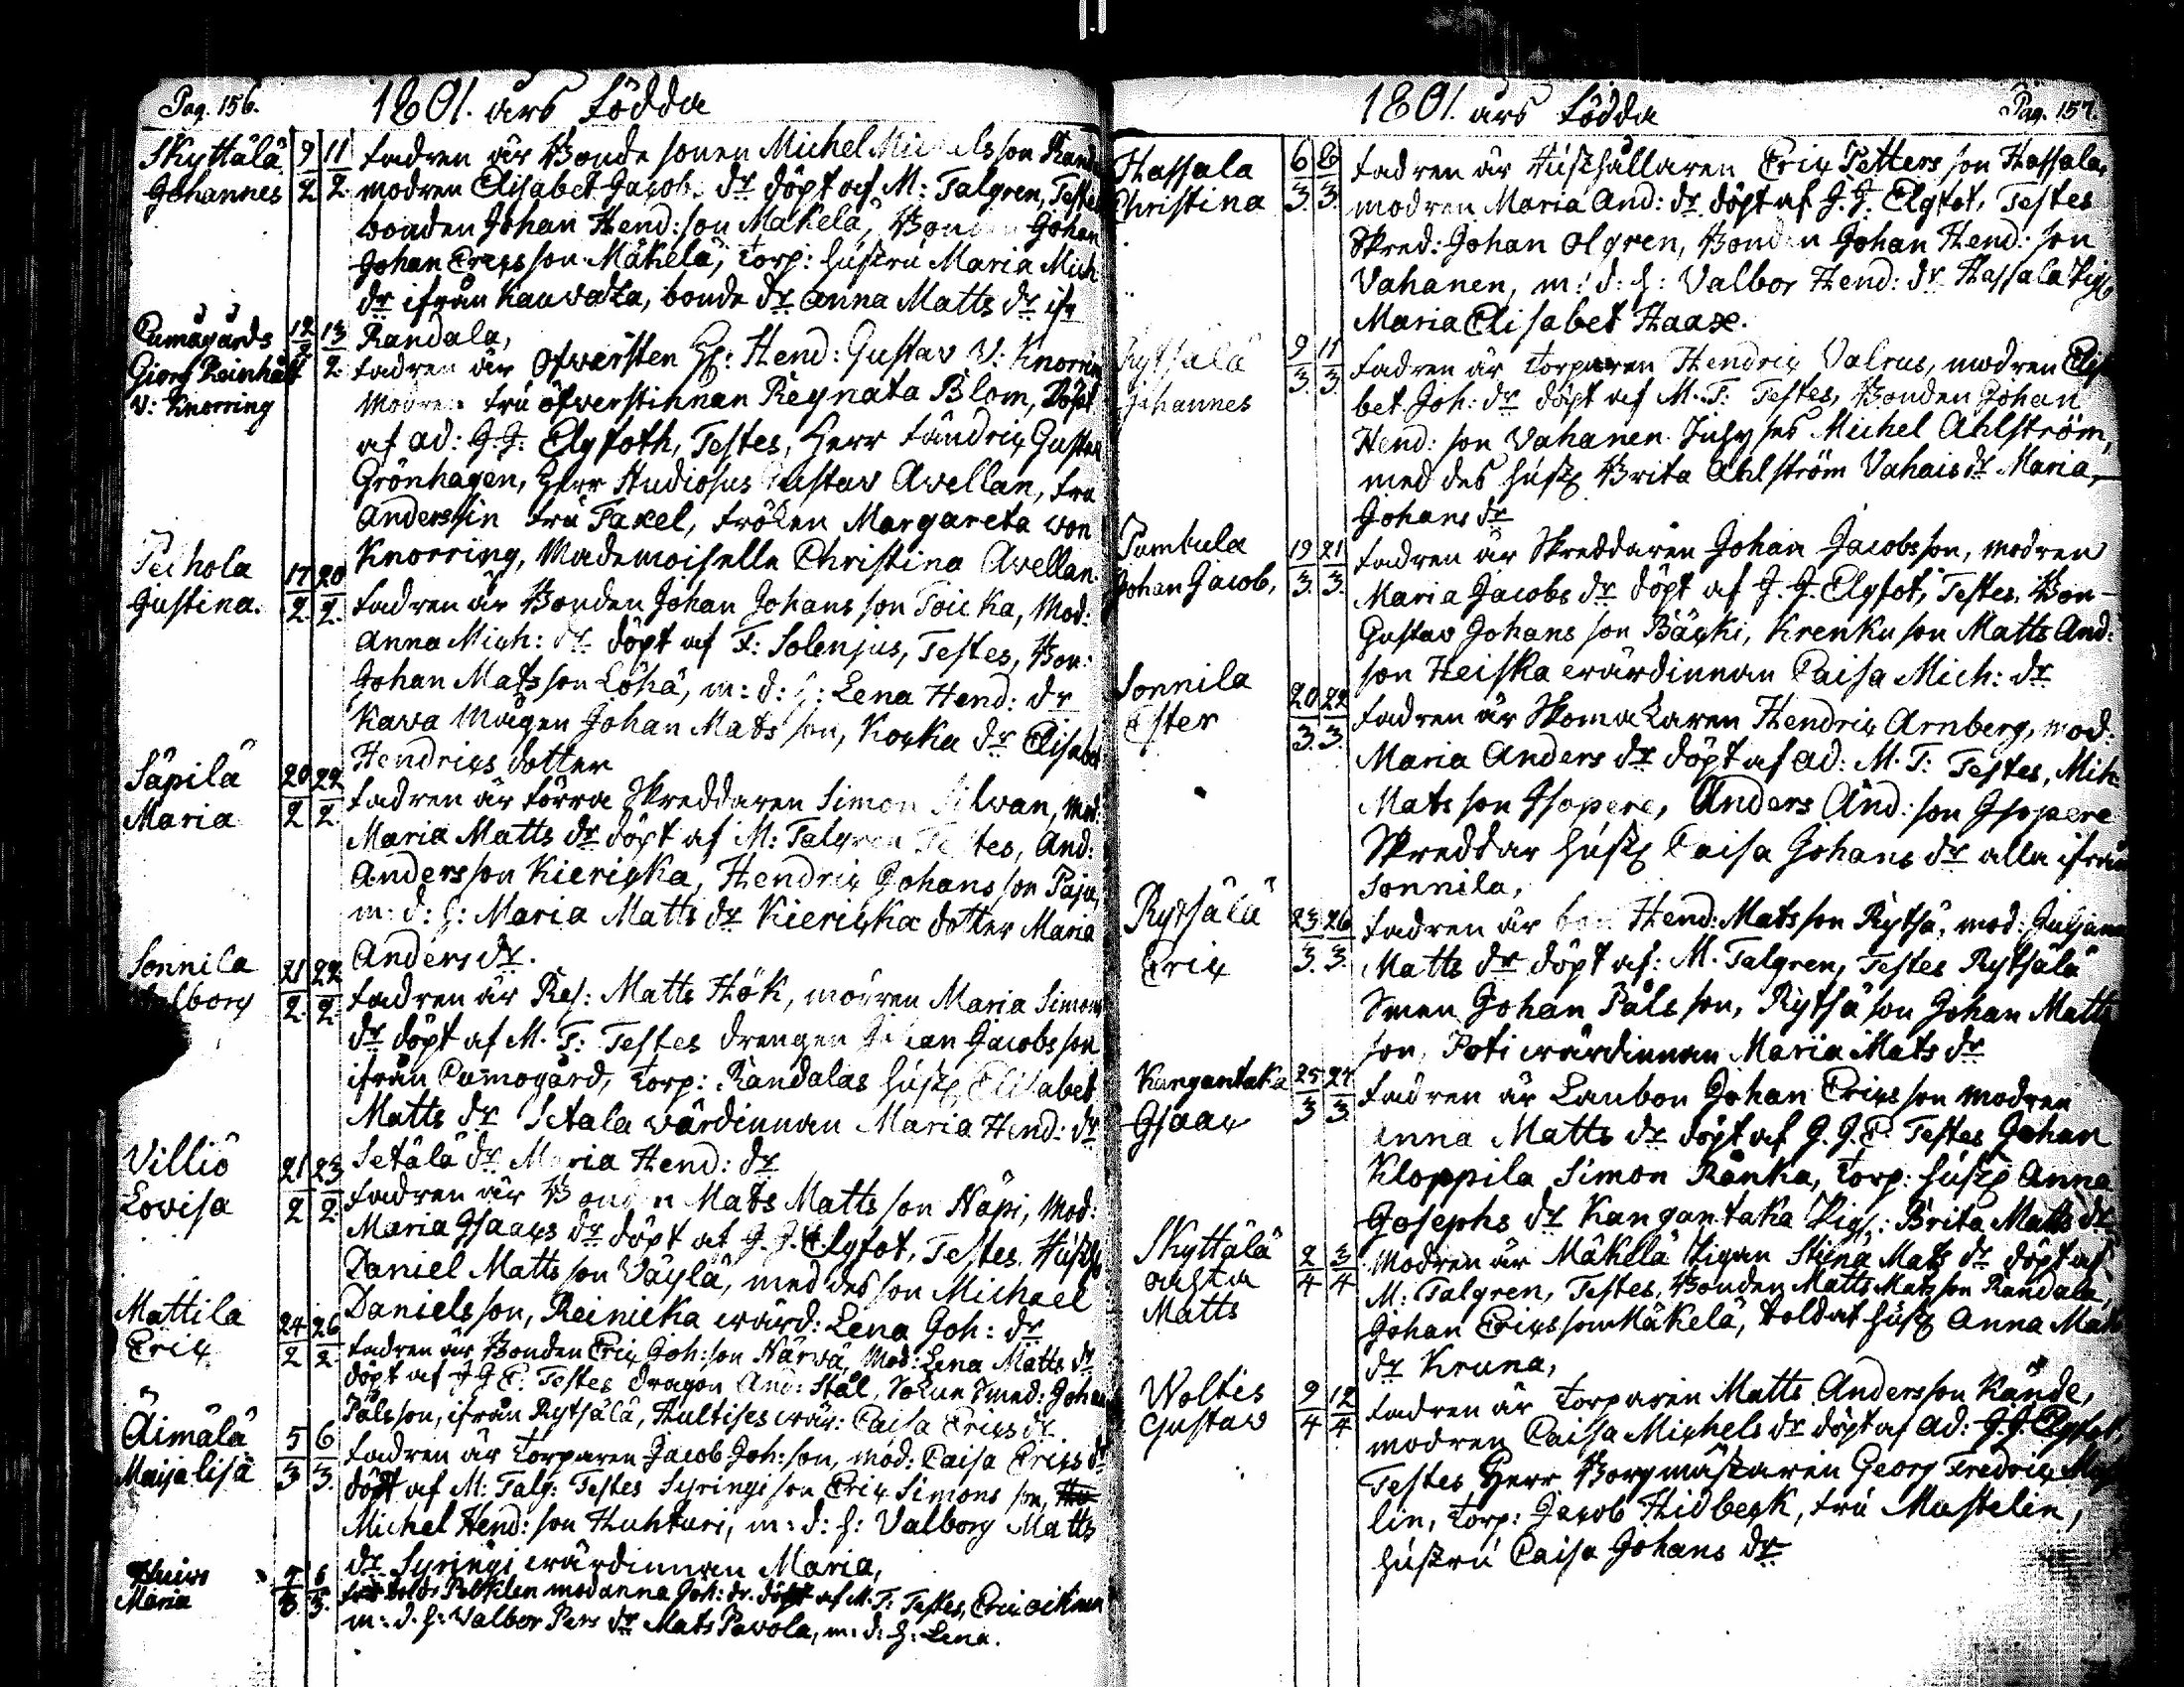 Pag. 156.
1801. års Födda
Skyttälä 9/2 11/2 Fadren är Bonde sonen Michel Michelsson
Johannes modren Elisabet Jacobs dr döpt af M: Talgren, Testes
bonden Johan Hend: son Mäkelä, Bonden Johan
Johan Ericsson Mäkelä, Torp: hustru Maria Mich
dr ifrån Kauvatza, bonde dr Anna Matts dr ifr
Randala,
Pumågårds 12/2 13/2 Fadren är Öfversten Hr: Hend: Gustav V: Knorring
Giorg Reinhålt
V: Knorring
Modren fru öfverstinnan Regnata Blom, Döpt
af ad: J. J: Elgfoth, Testes, Herr Fändric Gustav
Grönhagen, Herr Studiosus Gustav Avellan, fru
Anderssin fru Taxel, fröken Margareta von
Knorring, Mademoiselle Christina Avellan.
17/2 20/2 Fadren är Bonden Johan Johans son Toicka, Mod:
Justina.
Anna Mich: dr döpt af F: Solenius, Testes, Bon:
Johan Matsson Löhä, m: d: h: Lena Hend: dr
Kava Mågen Johan Mats son, Kocka dr Elisabet
Hendrics dotter
Säpilä 20/2 22/2 Fadren är förra Skreddaren Simon Silvan, mod:
Maria Maria Matts dr döpt af M: Talgren Testes, And:
Andersson Kiericka, Hendric Johans son Paju,
m: d: h: Maria Matts dr Kiericka dotter Maria
Anders dr.
Sonnila 21/2 22/2 Fadren är Res: Matts Hök, modren Maria Simons
dr döpt af M. T: Testes drengen Johan Jacobsson
ifrån Pumogård, Torp: Randalas hust: Elisabet
Matts dr Setala värdinnan Maria Hend: dr
Setälä dr Maria Hend: dr
Villiö 21/2 23/2 Fadren är Bonden Mats Matts son Näpi, Mod:
Lovisa Maria Isaacs dr döpt af J. J. Elgfot, Testes.
Daniel Matts son Väylä, med des son Michael
Daniels son, Reinicka värd: Lena Joh: dr
Mattila 24/2 26/2 Fadren är Bonden Eric Joh: son Närvä, Mod: Lena Matts dr
Eric döpt af J J E. Testes dragon And: Stål, Sokne Smed: Johan
Påls son, ifrån Rytsälä, Hultises vär: Caisa Erics dr
Äimälä 5/3 6/3 Fadren är Torparen Jacob Joh: son, mod: Caisa Erics dr
Maijalisa döpt af M: Talg: Testes Syringi son Eric Simons son,
Michel Hend: son Huhturi, m: d: h: Valborg Matts
dr Syringi värdinnan Maria,
Maria mod Anna Joh: dr. döpt af M. T: Testes,
m: d: h: Valbor Pers dr Mats Pavola, m: d: h: Lena.
1801. års Födda
Pag. 157.
Hassala 6/3 8/3 Fadren är Hushållaren Eric Petters son Hassala,
Christina modren Maria And: dr döpt af J. J. Elgfot, Testes
Skred: Johan Olgren, Bonden Johan Hend: son
Vahanen, m: d: h: Valbor Hend: dr Hassala Pig:
Maria Elisabet Haax.
Rytsälä 9/3 11/3 Fadren är Torparen Hendric Valrus, modren Elisa
Johannes bet Joh: dr döpt af M. T: Testes, Bonden Johan
Hend: son Vahanen. Michel Ahlström,
med des hust: Brita Ahlström Vahais dr Maria
Johans dr
Pumbula 19/3 21/3 Fadren är Skreddaren Johan Jacobsson, modren
Johan Jacob, Maria Jacobs dr döpt af J. J. Elgfot, Testes, Bon-
Gustav Johans son Bäcki, Krenku son Matts And:
son Heiska värdinnan Caisa Mich: dr
Sonnila 20/3 22/3 Fadren är Skomakaren Hendric Arnberg, mod:
Ester Maria Anders dr döpt af ad: M. T: Testes, Mich:
Mats son Isopere, Anders And: son Isopere
Skreddar hust: Caisa Johans dr alla ifrån
Sonnila,
Rytsälä 23/3 26/3 Fadren är bon Hend: Matsson Rytsä, mod: Juliana
Eric Matts dr döpt af: M. Talgren, Testes Rytsälä
Smen Johan Påls son, Rytsä son Johan Matts
son, Poti värdinnan Maria Mats dr
Kangantaka 25/3 27/3 Fadren är Lanbon Johan Erics son modren
Isaac Anna Matts dr döpt af J. J. E. Testes Johan
Kloppila Simon Ränka, Torp: hust: Anna
Josephs dr Kangantaka Pig: Brita Matts dr
Skyttälä 2/4 3/4 Modren är Mäkelä Pigan Stina Mats dr döpt af
oächta M: Talgren, Testes, Bonden Matts Matsson Randala,
Matts Johan Ericsson Mäkelä, Soldat hust: Anna Matts
dr Kruna,
Woltis 9/4 12/4 Fadren är Torparen Matts Andersson Rände,
Gustav modren Caisa Michels dr döpt af ad: J. J. Elgfot,
Testes Herr Borgmästaren Georg Fredric Muste
lin, Torp: Jacob Hidbeck, fru Mustelin,
hustru Caisa Johans dr